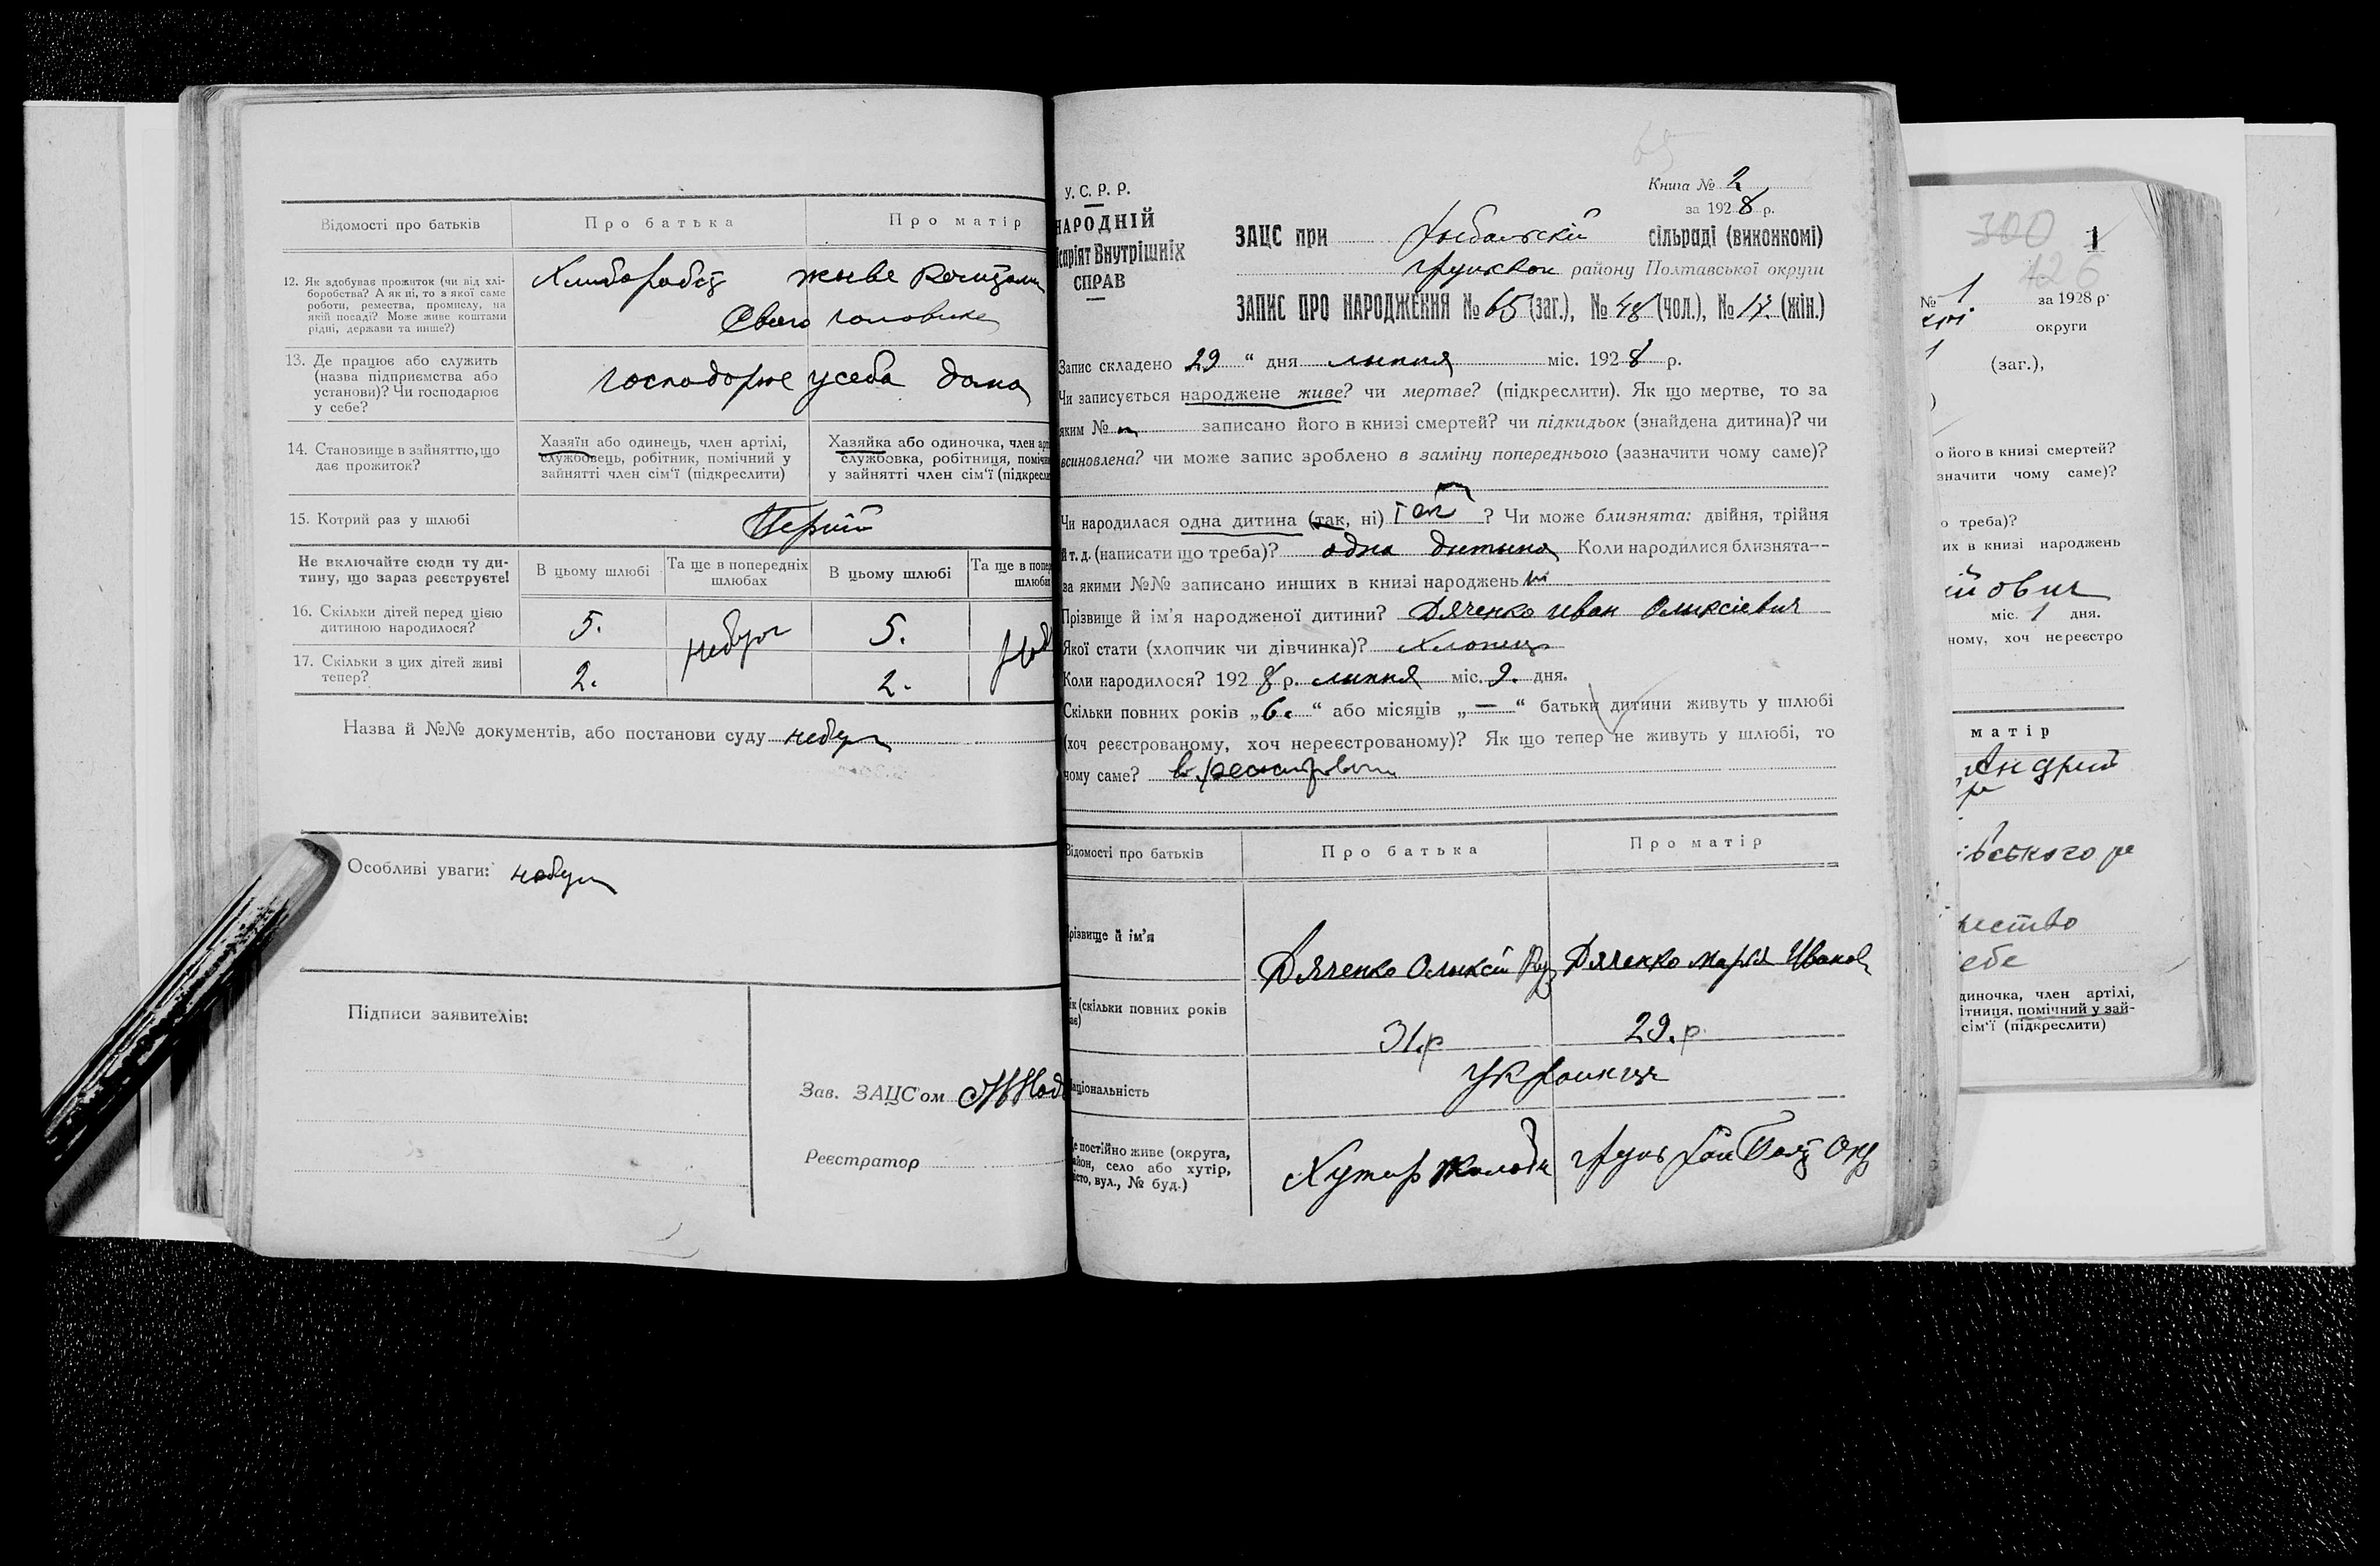 Відомості про батьків
Про батька
Про матір
12. Як здобуває прожиток (чи від хлі-
боробства? А як ні, то з якої саме
роботи, ремества, промислу, на
якій посаді? Може живе коштами
рідні, держави та инше?)
живе
свого
13. Де працює або служить
(назва підприємства або
установи)? Чи господарює
у себе?
господорює усеба дома
14. Становище в зайняттю, що
дає прожиток?
Хазяїн або одинець, член артілі,
службовець, робітник, помічний у
зайнятті член сім'ї (підкреслити)
Хазяйка або одиночка, член арт
службовка, робітниця, помічн
у зайнятті член сім'ї (підкресл
15. Котрий раз у шлюбі
Перший
Не включайте сюди ту ди-
тину, що зараз реєструєте!
В цьому шлюбі
Та ще в попередніх
шлюбах
В цьому шлюбі
Та ще в попер
шлюбах
16. Скільки дітей перед цією
дитиною народилося?
5.
5.
17. Скільки з цих дітей живі
тепер?
2.
2.
Назва й №№ документів, або постанови суду
Особливі уваги:
Підписи заявителів:
Зав. ЗАЦС'ом
Реєстратор
65
У. С. Р. Р.
НАРОДНІЙ
існріят Внутрішніх
СПРАВ
Книга № 2
за 1928 р.
ЗАЦС при сільраді (виконкомі)
району Полтавської округи
ЗАПИС ПРО НАРОДЖЕННЯ № 65 (заг.), № 48 (чол.), № 17. (жін.)
Запис складено 29 “ дня липня міс. 1928 р.
Чи записується народжене живе? чи мертве? (підкреслити). Як що мертве, то за
яким № записано його в книзі смертей? чи підкидьок (знайдена дитина)? чи
всиновлена? чи може запис зроблено в заміну попереднього (зазначити чому саме)?
Чи народилася одна дитина (так, ні) так ? Чи може близнята: двійня, трійня
й т. д. (написати що треба)? одна дитина Коли народилися близнята—
за якими №№ записано инших в книзі народжень
Прізвище й ім'я народженої дитини? Дяченко Иван Оликсієвич
Якої стати (хлопчик чи дівчинка)? Хлопець
Коли народилося? 1928 р. липня міс. 9. дня.
Скільки повних років „6.“ або місяців „—“ батьки дитини живуть у шлюбі
(хоч реєстрованому, хоч нереєстрованому)? Як що тепер не живуть у шлюбі, то
чому саме?
Відомості про батьків
Про батька
Про матір
різвище й ім'я
Дяченко Олыксій
Дяченко Марія Иванов
ік (скільки повних років
ає)
31.р
29.р
аціональність
Украинци
е постійно живе (округа,
айон, село або хутір,
істо, вул., № буд.)
Хутир
300
1
426
№ 1
за 1928 р.
округи
1
(заг.),
о його в книзі смертей?
значити чому саме)?
о треба)?
их в книзі народжень
йович
міс. 1 дня.
ному, хоч нереєстро
матір
Андрий
вського
ество
ебе
диночка, член артілі,
ітниця, помічний у зай-
сім'ї (підкреслити)